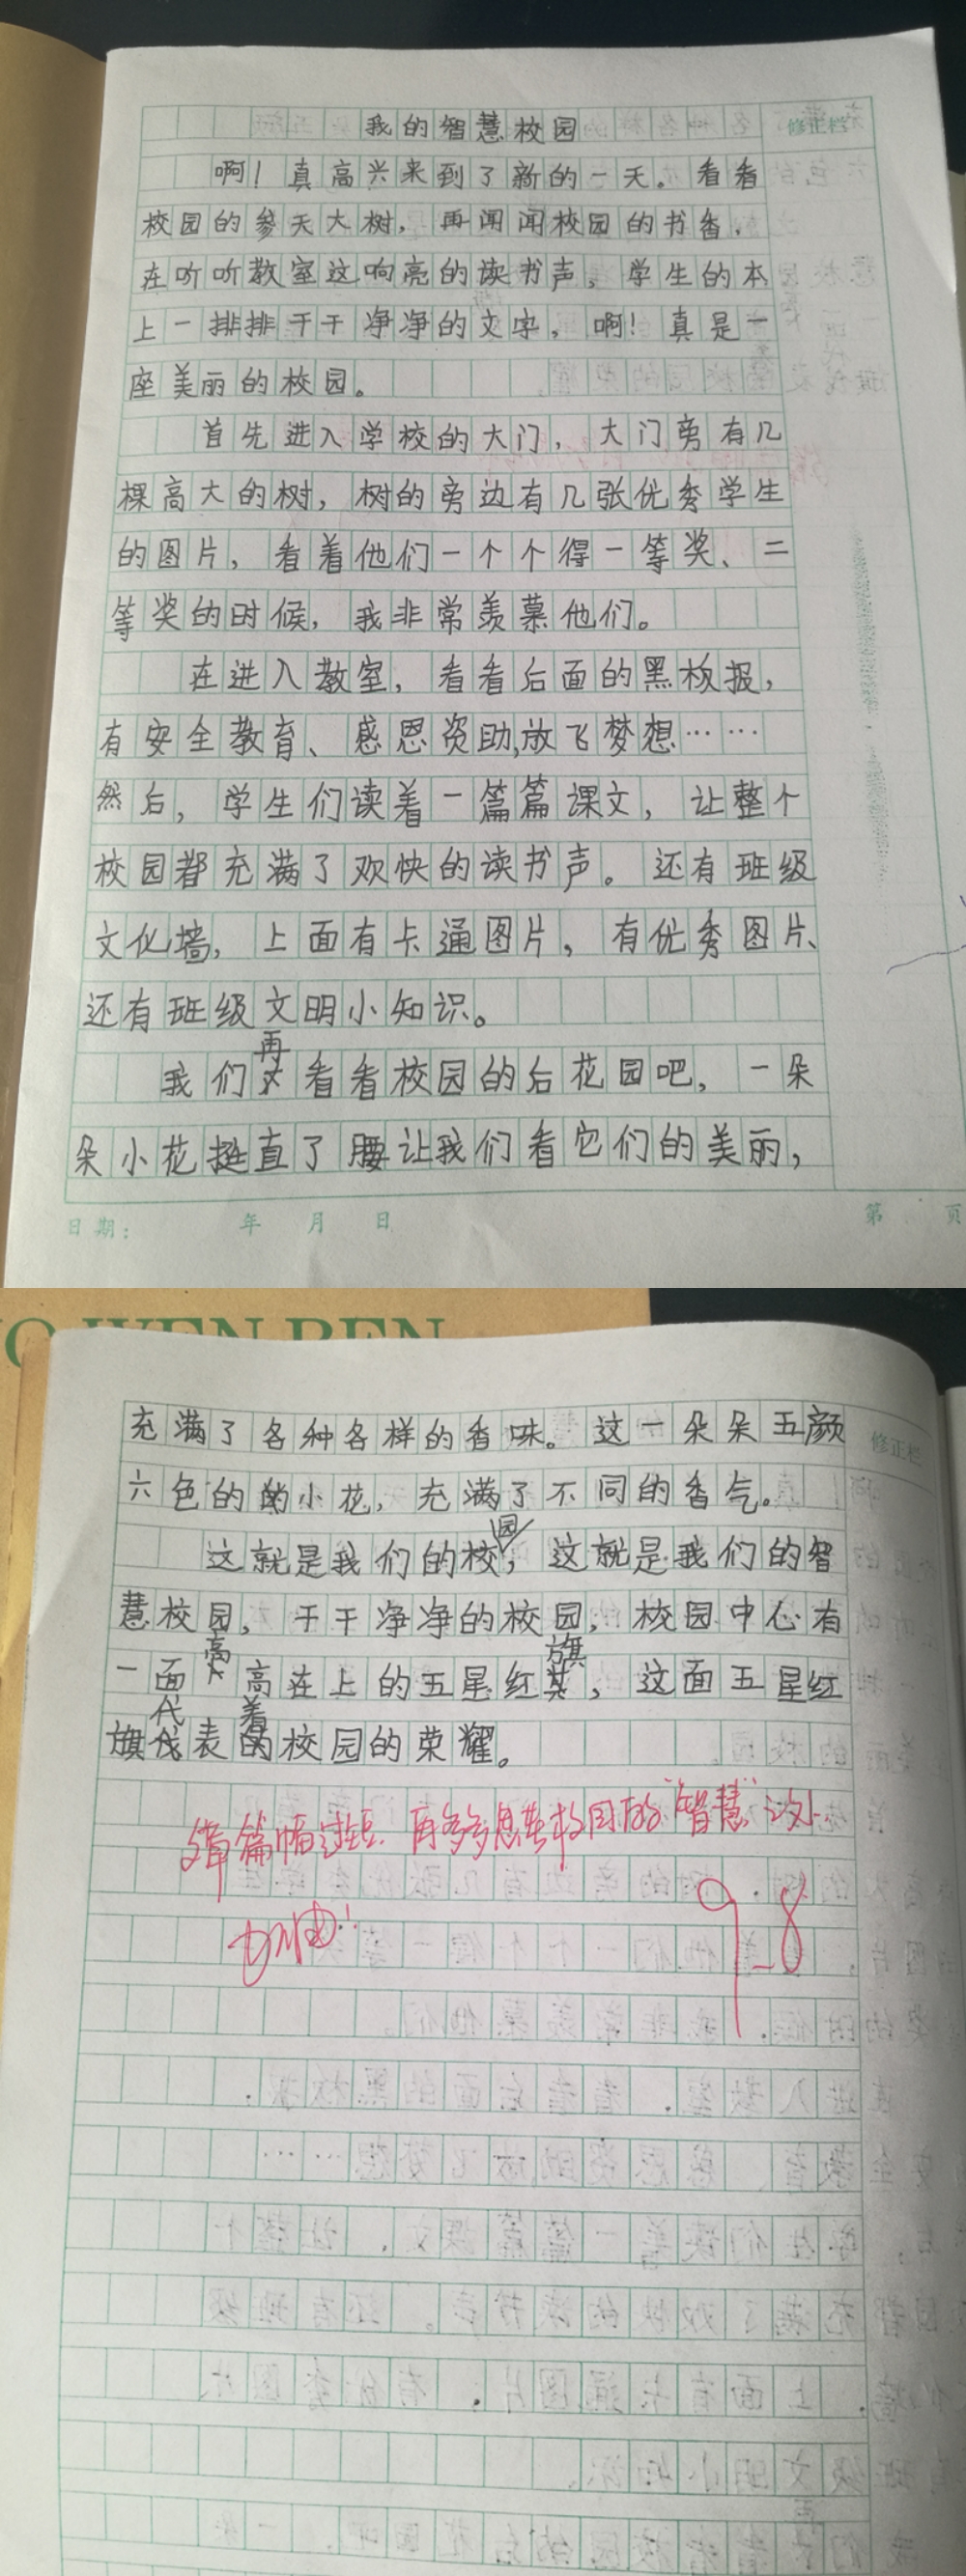 我的智慧校园
修正栏
啊！真高兴来到了新的一天。看看
校园的参天大树，再闻闻校园的书香，
在听听教室这响亮的读书声，学生的本
上一排排干干净净的文字，啊！真是一
座美丽的校园。
首先进入学校的大门，大门旁有几
棵高大的树，树的旁边有几张优秀学生
的图片，看着他们一个个得一等奖、二
等奖的时候，我非常羡慕他们。
在进入教室，看看后面的黑板报，
有安全教育、感恩资助,放飞梦想……
然后，学生们读着一篇篇课文，让整个
校园都充满了欢快的读书声。还有班级
文化墙，上面有卡通图片，有优秀图片、
还有班级文明小知识。
我们再看看校园的后花园吧，一朵
朵小花挺直了腰让我们看它们的美丽，
日期： 年 月 日 第 页
WEN BEN
充满了各种各样的香味。这一朵朵五颜
修正栏
六色的小花，充满了不同的香气。
这就是我们的校园，这就是我们的智
慧校园，干干净净的校园，校园中心有
一面高高在上的五星红旗，这面五星红
旗代表着校园的荣耀。
文章篇幅过短，再多多思考校园的“智慧”之处.
加油！
9_8